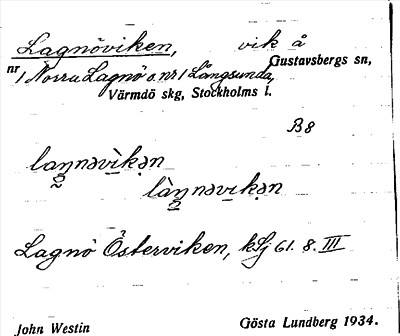 Lagnöviken, vik å
Gustavsbergs sn,
nr 1 Norra Lagnö o. nr 1 Långsunda,
Värmdö skg, Stockholms l.
B8
laŋnəvìkən
làŋnəvıkən
Lagnö Österviken, kSj 61. 8. III
John Westin Gösta Lundberg 1934.